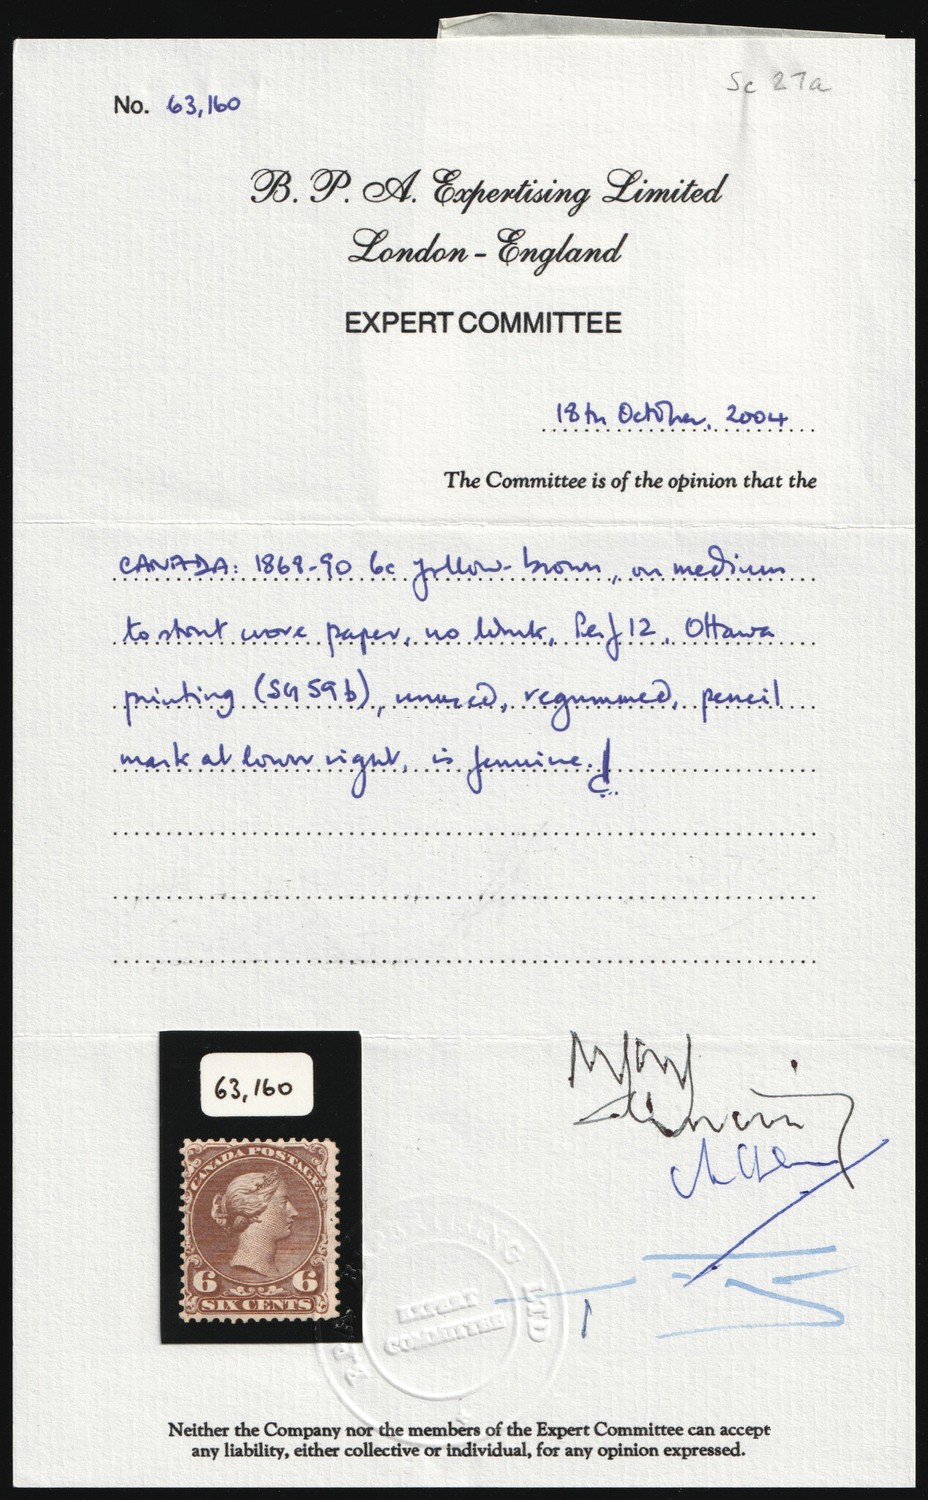 Sc 27a
No. 63,160
B. P. A. Expertising Limited
London - England
EXPERT COMMITTEE
18th October, 2004
The Committee is of the opinion that the
CANADA: 1868-90 6c yellow-brown, on medium
to stout wove paper, no Wmk, Perf 12, Ottawa
printing (SG 59b), unused, regummed, pencil
mark at lower right, is genuine.
63,160
CANADA POSTAGE
6 6
SIX CENTS
EXPERTISING LTD
EXPERT
COMMITTEE
Neither the Company nor the members of the Expert Committee can accept
any liability, either collective or individual, for any opinion expressed.